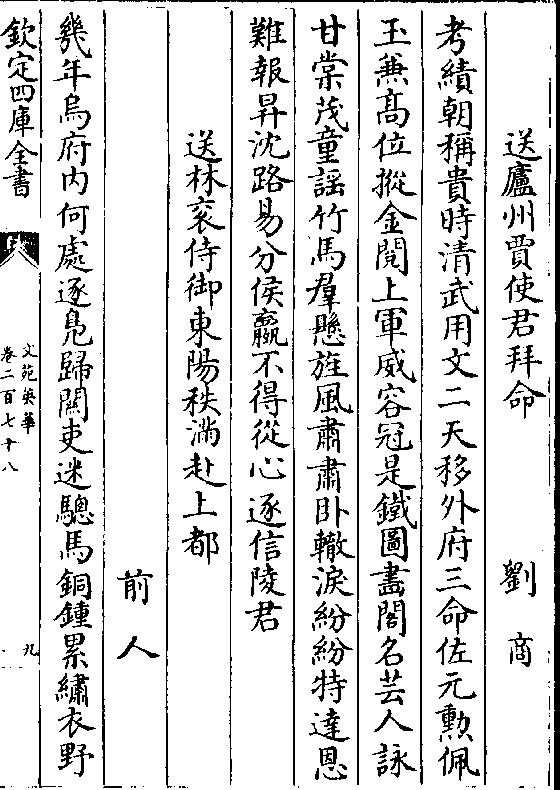 送廬州賈使君拜命　劉商
考績朝稱貴時清武用文二天移外府三命佐元勲佩
玉兼髙位摐金閱上軍威容冠是鐵圖畫閣名芸人詠
甘棠茂童謡竹馬羣懸旌風肅肅卧轍淚紛紛特達恩
難報昇沈路易分侯嬴不得從心逐信陵君
送林衮侍御東陽秩滿赴上都
前人
幾年烏府内何處逐鳬歸闗吏迷驄馬銅鍾累繡衣野
欽定四庫全書
文苑英華
卷二百七十八
九